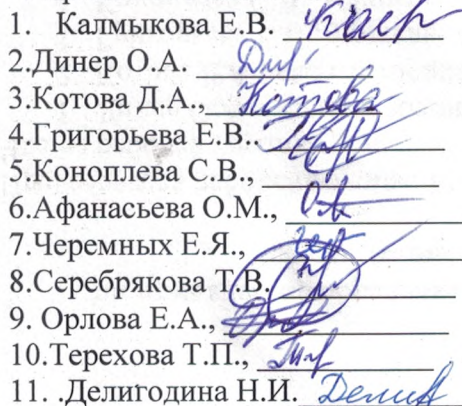 1. Калмыкова Е.В. Калм
2.Динер О.А. Дин
3.Котова Д.А., Котова
4.Григорьева Е.В..
5.Коноплева С.В.,
6.Афанасьева О.М.,
7.Черемных Е.Я., Чер
8.Серебрякова Т.В.
9. Орлова Е.А.,
10.Терехова Т.П., Тер
11. .Делигодина Н.И. Делиг